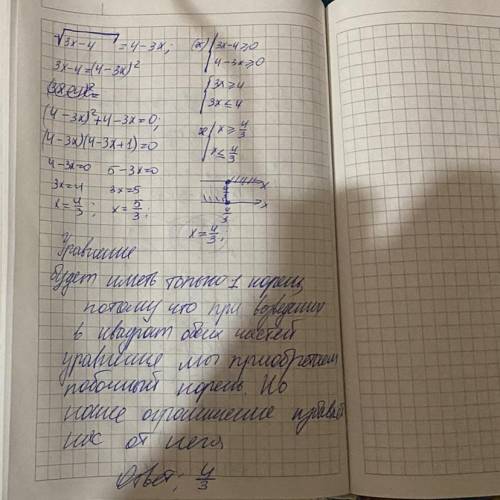 √3x-4 = 4-3x;
3x-4=(4-3x)²
(4-3x)²+4-3x=0;
(4-3x)(4-3x+1)=0
4-3x=0 5-3x=0
3x=4 3x=5
x=4/3; x=5/3;
3x-4≥0
4-3x≥0
3x≥4
3x≤4
x≥4/3
x≤4/3
x
x
x=4/3;
Уравнение
будет иметь только 1 корень,
потому что при возведении
в квадрат обеих частей
уравнения мы приобретаем
побочный корень. Но
наше ограничение избавляет
нас от него
Ответ: 4/3